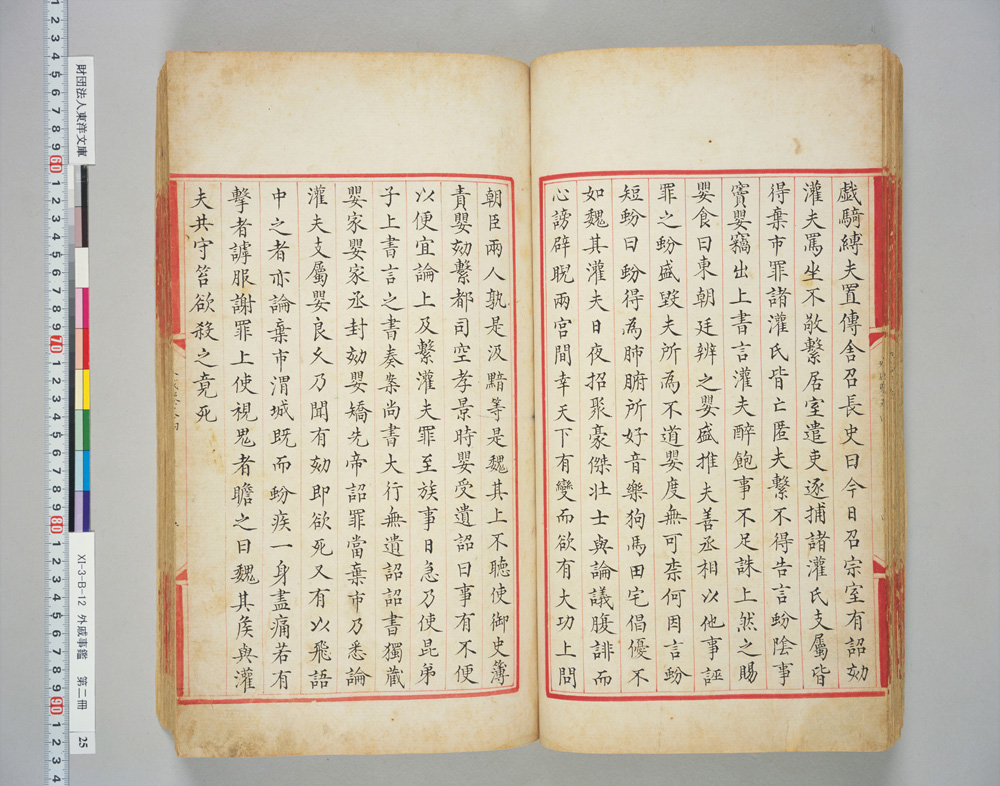 戯騎縛夫置傳舍召長史曰今日召宗室有詔劾
灌夫罵坐不敬繫居室遣吏逐捕諸灌氏支屬皆
得棄市罪諸灌氏皆亡匿夫繫不得告言蚡陰事
竇嬰竊出上書言灌夫醉飽事不足誅上然之賜
嬰食曰東朝廷辨之嬰盛推夫善丞相以他事誣
罪之蚡盛毀夫所為不道嬰度無可柰何因言蚡
短蚡曰蚡得為肺腑所好音樂狗馬田宅倡優不
如魏其灌夫日夜招聚豪傑壯士與論議腹誹而
心謗辟睨兩宮間幸天下有變而欲有大功上問
朝臣兩人孰是汲黯等是魏其上不聽使御史簿
責嬰劾繫都司空孝景時嬰受遺詔曰事有不便
以便宜論上及繫灌夫罪至族事日急乃使昆弟
子上書言之書奏案尚書大行無遺詔詔書獨藏
嬰家嬰家丞封劾嬰矯先帝詔罪當棄市乃悉論
灌夫支屬嬰良久乃聞有劾即欲死又有以飛語
中之者亦論棄市渭城既而蚡疾一身盡痛若有
擊者謼服謝罪上使視鬼者瞻之曰魏其矦與灌
夫共守笞欲殺之竟死
財団法人東洋文庫
XI-3-B-12 外戚事鑑 第二冊 25